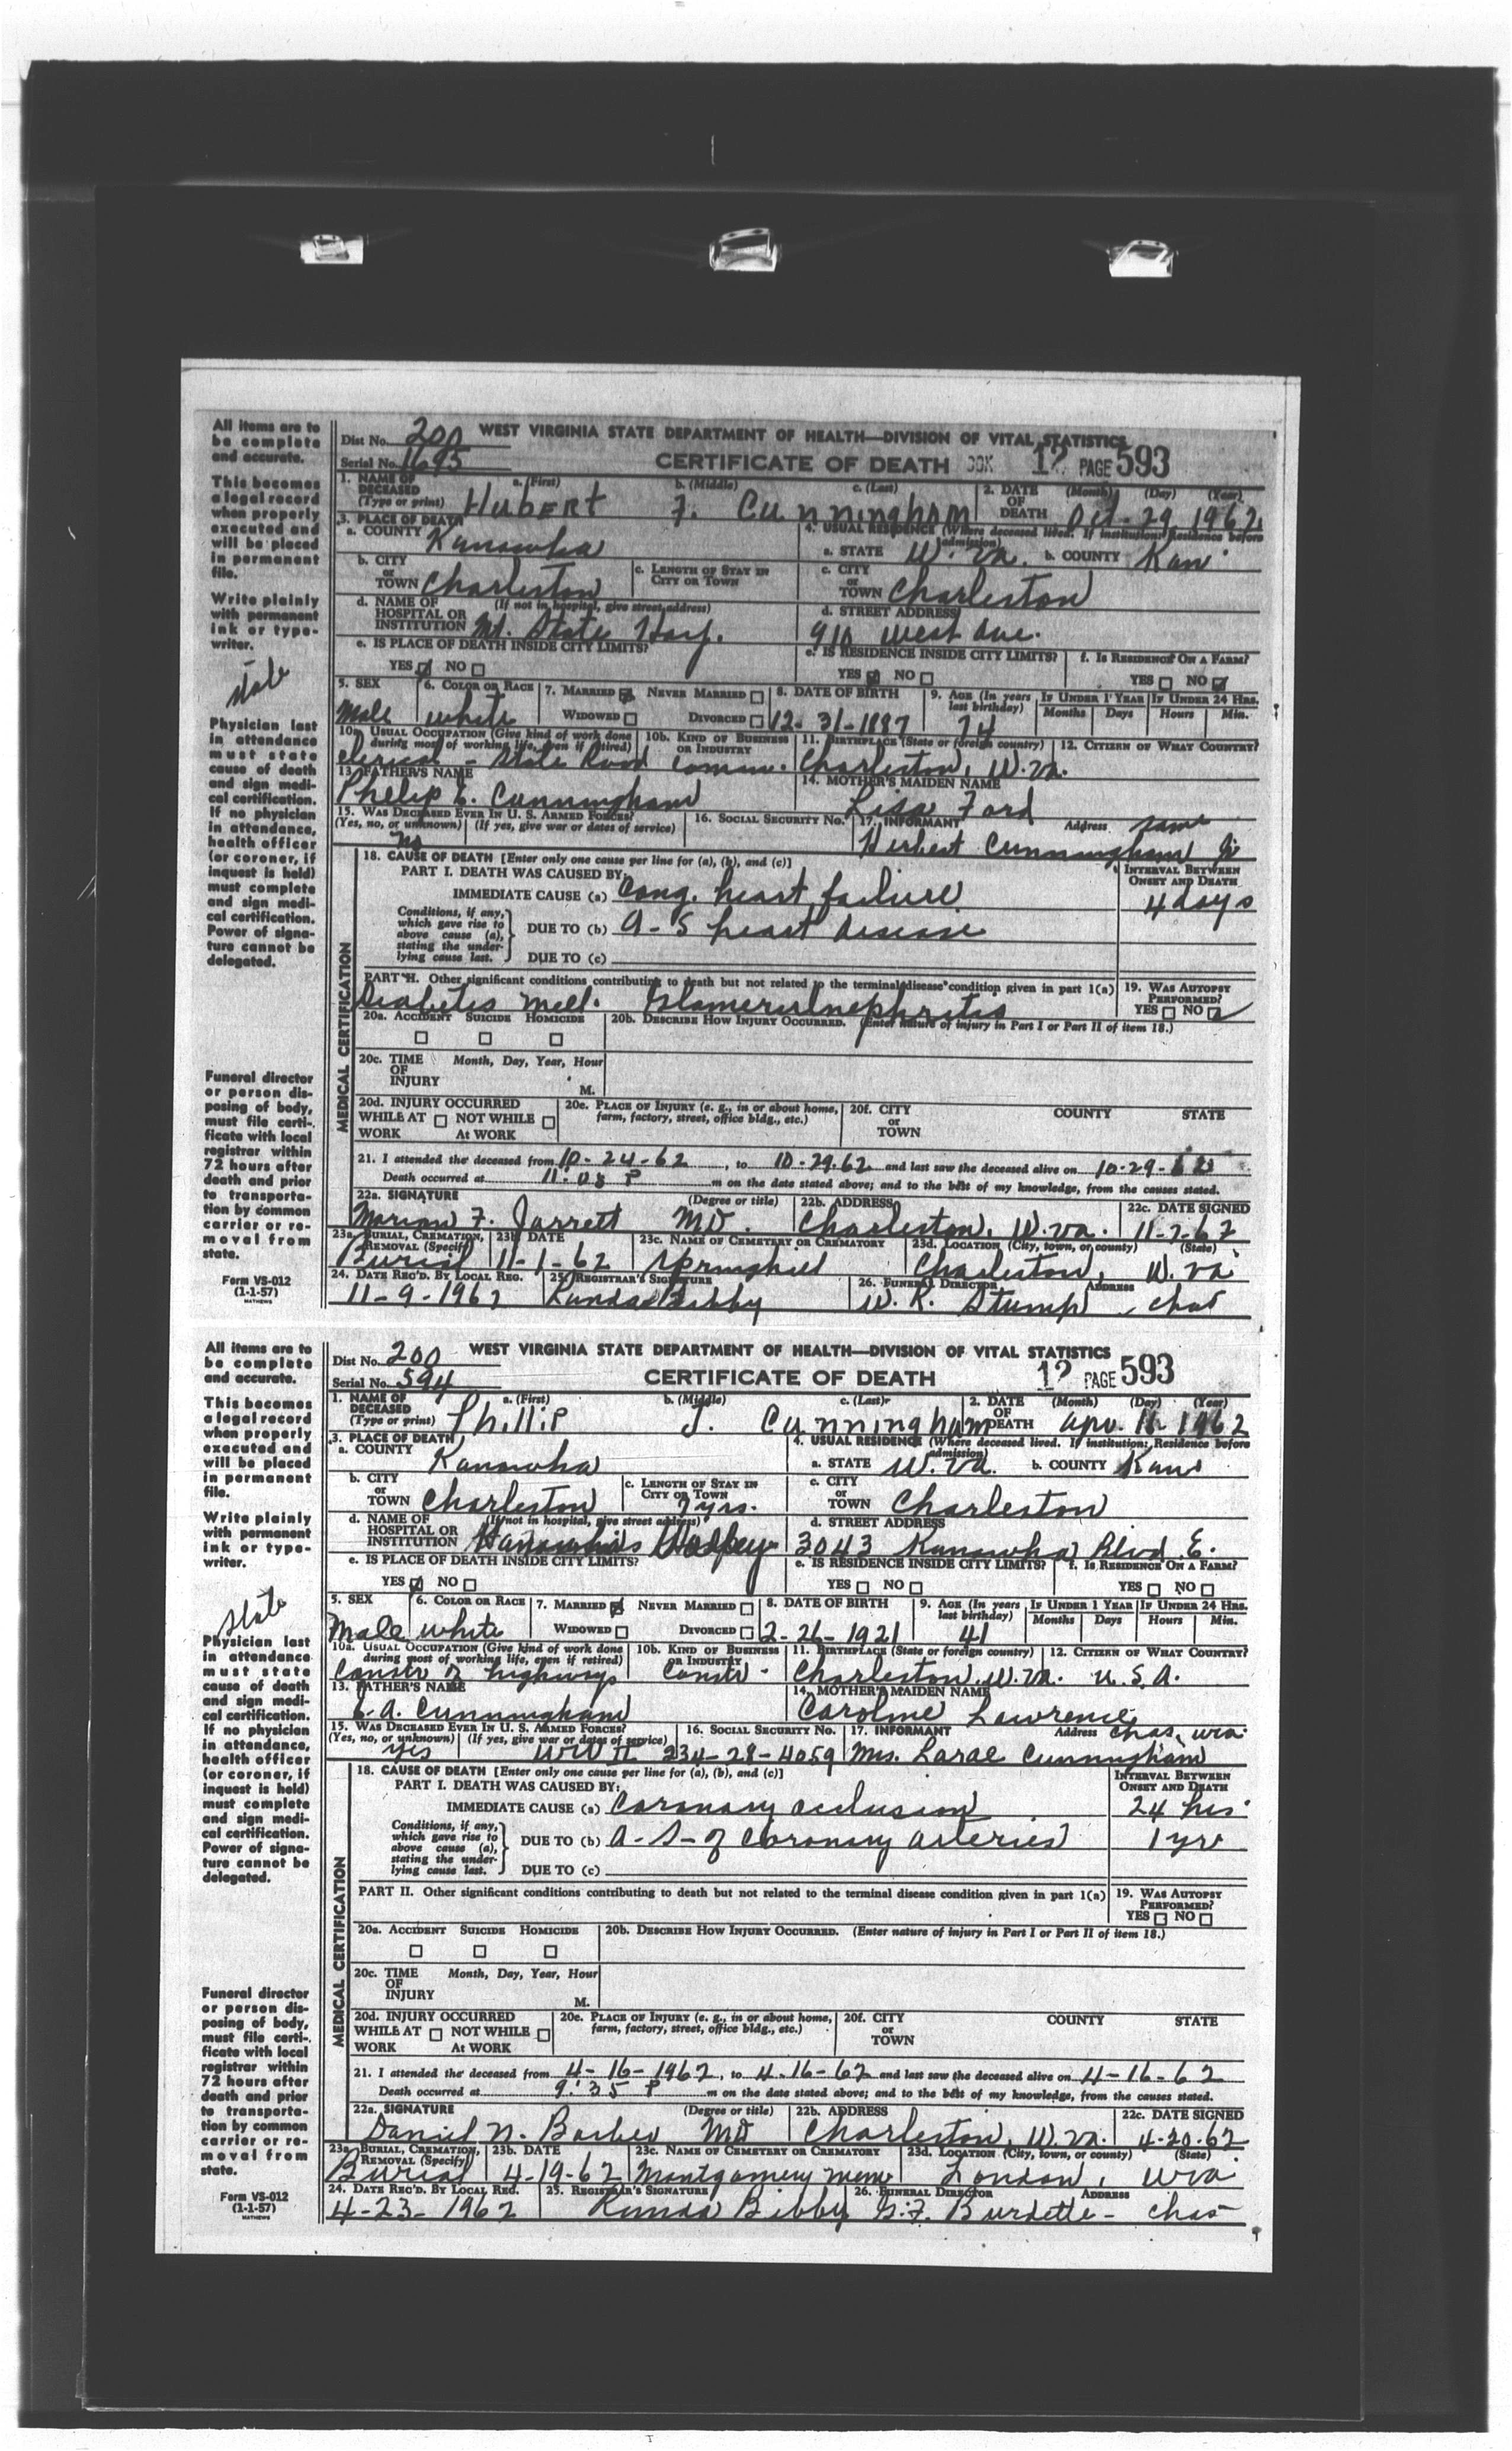 All items are to be complete and accurate.
This becomes a legal record when properly executed and will be placed in permanent file.
Write plainly with permanent ink or typewriter.
state
Physician last in attendance must state cause of death and sign medical certification. If no physician in attendance, health officer (or coroner, if inquest is held) must complete and sign medical certification. Power of signature cannot be delegated.
Funeral director or person disposing of body, must file certificate with local registrar within 72 hours after death and prior to transportation by common carrier or removal from state.
Form VS-012
(1-1-57)
MATHEWS
WEST VIRGINIA STATE DEPARTMENT OF HEALTH—DIVISION OF VITAL STATISTICS
Dist No. 200
Serial No. 1695
CERTIFICATE OF DEATH 12 PAGE 593
1. NAME OF DECEASED (Type or print) a. (First) b. (Middle) c. (Last) 2. DATE OF DEATH (Month) (Day) (Year)
Hubert F. Cunningham Oct. 29, 1962
3. PLACE OF DEATH 4. USUAL RESIDENCE (Where deceased lived. If institution: Residence before admission)
a. COUNTY Kanawha a. STATE W. Va. b. COUNTY Kan
b. CITY or TOWN Charleston c. LENGTH OF STAY IN CITY OR TOWN c. CITY or TOWN Charleston
d. NAME OF HOSPITAL OR INSTITUTION (If not in hospital, give street address) Mt. State Hosp. d. STREET ADDRESS 910 West Ave.
e. IS PLACE OF DEATH INSIDE CITY LIMITS? e. IS RESIDENCE INSIDE CITY LIMITS? f. IS RESIDENCE ON A FARM?
YES NO YES NO YES NO
5. SEX 6. COLOR OR RACE 7. MARRIED NEVER MARRIED 8. DATE OF BIRTH 9. AGE (In years last birthday) IF UNDER 1 YEAR IF UNDER 24 HRS.
Male white WIDOWED DIVORCED 12-31-1887 74 Months Days Hours Min.
10a. USUAL OCCUPATION (Give kind of work done during most of working life, even if retired) 10b. KIND OF BUSINESS OR INDUSTRY 11. BIRTHPLACE (State or foreign country) 12. CITIZEN OF WHAT COUNTRY?
clerical - State Road Comm. Charleston, W. Va.
13. FATHER'S NAME 14. MOTHER'S MAIDEN NAME
Philip E. Cunningham Lisa Ford
15. WAS DECEASED EVER IN U. S. ARMED FORCES? 16. SOCIAL SECURITY NO. 17. INFORMANT Address same
(Yes, no, or unknown) (If yes, give war or dates of service)
no Herbert Cunningham Jr
MEDICAL CERTIFICATION
18. CAUSE OF DEATH [Enter only one cause per line for (a), (b), and (c)] INTERVAL BETWEEN ONSET AND DEATH
PART I. DEATH WAS CAUSED BY:
IMMEDIATE CAUSE (a) Cong. heart failure 4 days
Conditions, if any, which gave rise to above cause (a), stating the underlying cause last.
DUE TO (b) A-S heart disease
DUE TO (c)
PART II. Other significant conditions contributing to death but not related to the terminal disease condition given in part 1(a) 19. WAS AUTOPSY PERFORMED?
Diabetis Mell. Glomerulnephritis YES NO
20a. ACCIDENT SUICIDE HOMICIDE 20b. DESCRIBE HOW INJURY OCCURRED. (Enter nature of injury in Part I or Part II of item 18.)
20c. TIME OF INJURY Month, Day, Year, Hour M.
20d. INJURY OCCURRED WHILE AT WORK NOT WHILE AT WORK 20e. PLACE OF INJURY (e. g., in or about home, farm, factory, street, office bldg., etc.) 20f. CITY or TOWN COUNTY STATE
21. I attended the deceased from 10-24-62, to 10-29-62 and last saw the deceased alive on 10-29-62
Death occurred at 11:08 P m on the date stated above; and to the best of my knowledge, from the causes stated.
22a. SIGNATURE (Degree or title) 22b. ADDRESS 22c. DATE SIGNED
Marion F. Jarrett MD. Charleston, W. Va. 11-7-62
23a. BURIAL, CREMATION, REMOVAL (Specify) 23b. DATE 23c. NAME OF CEMETERY OR CREMATORY 23d. LOCATION (City, town, or county) (State)
Burial 11-1-62 Springhill Charleston, W. Va
24. DATE REC'D. BY LOCAL REG. 25. REGISTRAR'S SIGNATURE 26. FUNERAL DIRECTOR ADDRESS
11-9-1962 Bibby W. K. Stump, Chas
All items are to be complete and accurate.
This becomes a legal record when properly executed and will be placed in permanent file.
Write plainly with permanent ink or typewriter.
state
Physician last in attendance must state cause of death and sign medical certification. If no physician in attendance, health officer (or coroner, if inquest is held) must complete and sign medical certification. Power of signature cannot be delegated.
Funeral director or person disposing of body, must file certificate with local registrar within 72 hours after death and prior to transportation by common carrier or removal from state.
Form VS-012
(1-1-57)
MATHEWS
WEST VIRGINIA STATE DEPARTMENT OF HEALTH—DIVISION OF VITAL STATISTICS
Dist No. 200
Serial No. 594
CERTIFICATE OF DEATH 12 PAGE 593
1. NAME OF DECEASED (Type or print) a. (First) b. (Middle) c. (Last) 2. DATE OF DEATH (Month) (Day) (Year)
Phillip J. Cunningham Apr. 16 1962
3. PLACE OF DEATH 4. USUAL RESIDENCE (Where deceased lived. If institution: Residence before admission)
a. COUNTY Kanawha a. STATE W. Va. b. COUNTY Kan
b. CITY or TOWN Charleston c. LENGTH OF STAY IN CITY OR TOWN 7 yrs. c. CITY or TOWN Charleston
d. NAME OF HOSPITAL OR INSTITUTION (If not in hospital, give street address) d. STREET ADDRESS 3043 Kanawha Blvd. E.
e. IS PLACE OF DEATH INSIDE CITY LIMITS? e. IS RESIDENCE INSIDE CITY LIMITS? f. IS RESIDENCE ON A FARM?
YES NO YES NO YES NO
5. SEX 6. COLOR OR RACE 7. MARRIED NEVER MARRIED 8. DATE OF BIRTH 9. AGE (In years last birthday) IF UNDER 1 YEAR IF UNDER 24 HRS.
Male white WIDOWED DIVORCED 2-26-1921 41 Months Days Hours Min.
10a. USUAL OCCUPATION (Give kind of work done during most of working life, even if retired) 10b. KIND OF BUSINESS OR INDUSTRY 11. BIRTHPLACE (State or foreign country) 12. CITIZEN OF WHAT COUNTRY?
Constr of highways Constr. Charleston, W. Va. U.S.A.
13. FATHER'S NAME 14. MOTHER'S MAIDEN NAME
A. Cunningham Caroline Lawrence
15. WAS DECEASED EVER IN U. S. ARMED FORCES? 16. SOCIAL SECURITY NO. 17. INFORMANT Address Chas, WVa
(Yes, no, or unknown) (If yes, give war or dates of service)
yes WW II 234-28-4059 Mrs. Larae Cunningham
MEDICAL CERTIFICATION
18. CAUSE OF DEATH [Enter only one cause per line for (a), (b), and (c)] INTERVAL BETWEEN ONSET AND DEATH
PART I. DEATH WAS CAUSED BY:
IMMEDIATE CAUSE (a) Coronary occlusion 24 hrs.
Conditions, if any, which gave rise to above cause (a), stating the underlying cause last.
DUE TO (b) A-S-of coronary arteries 1 yr
DUE TO (c)
PART II. Other significant conditions contributing to death but not related to the terminal disease condition given in part 1(a) 19. WAS AUTOPSY PERFORMED?
YES NO
20a. ACCIDENT SUICIDE HOMICIDE 20b. DESCRIBE HOW INJURY OCCURRED. (Enter nature of injury in Part I or Part II of item 18.)
20c. TIME OF INJURY Month, Day, Year, Hour M.
20d. INJURY OCCURRED WHILE AT WORK NOT WHILE AT WORK 20e. PLACE OF INJURY (e. g., in or about home, farm, factory, street, office bldg., etc.) 20f. CITY or TOWN COUNTY STATE
21. I attended the deceased from 4-16-1962, to 4-16-62 and last saw the deceased alive on 4-16-62
Death occurred at 9:35 P m on the date stated above; and to the best of my knowledge, from the causes stated.
22a. SIGNATURE (Degree or title) 22b. ADDRESS 22c. DATE SIGNED
Daniel N. Barber MD Charleston, W. Va. 4-20-62
23a. BURIAL, CREMATION, REMOVAL (Specify) 23b. DATE 23c. NAME OF CEMETERY OR CREMATORY 23d. LOCATION (City, town, or county) (State)
Burial 4-19-62 Montgomery Mem London, WVa
24. DATE REC'D. BY LOCAL REG. 25. REGISTRAR'S SIGNATURE 26. FUNERAL DIRECTOR ADDRESS
4-23-1962 Bibby G.F. Burdette - Chas